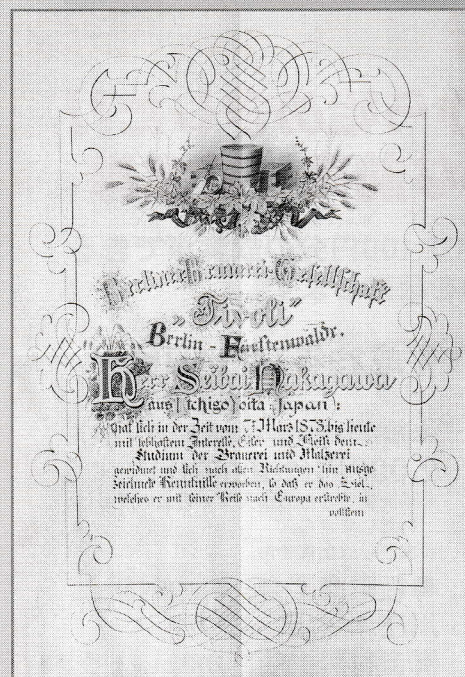 Berliner Brauerei-Gesellschaft
„Tivoli"
Berlin - Fürstenwalde.
Herr Seibei Nakagawa
aus (Ichigo) oita (Japan):
hat sich in der Zeit vom 7. März 1873, bis heute
mit lebhaftem Interesse, Eifer und Fleiß dem
Studium der Brauerei und Malzerei
gewidmet und sich nach allen Richtungen hin ausge
zeichnete Kenntnisse erworben, so daß er das Ziel,
welches er mit seiner Reise nach Europa erstrebte, in
vollstem